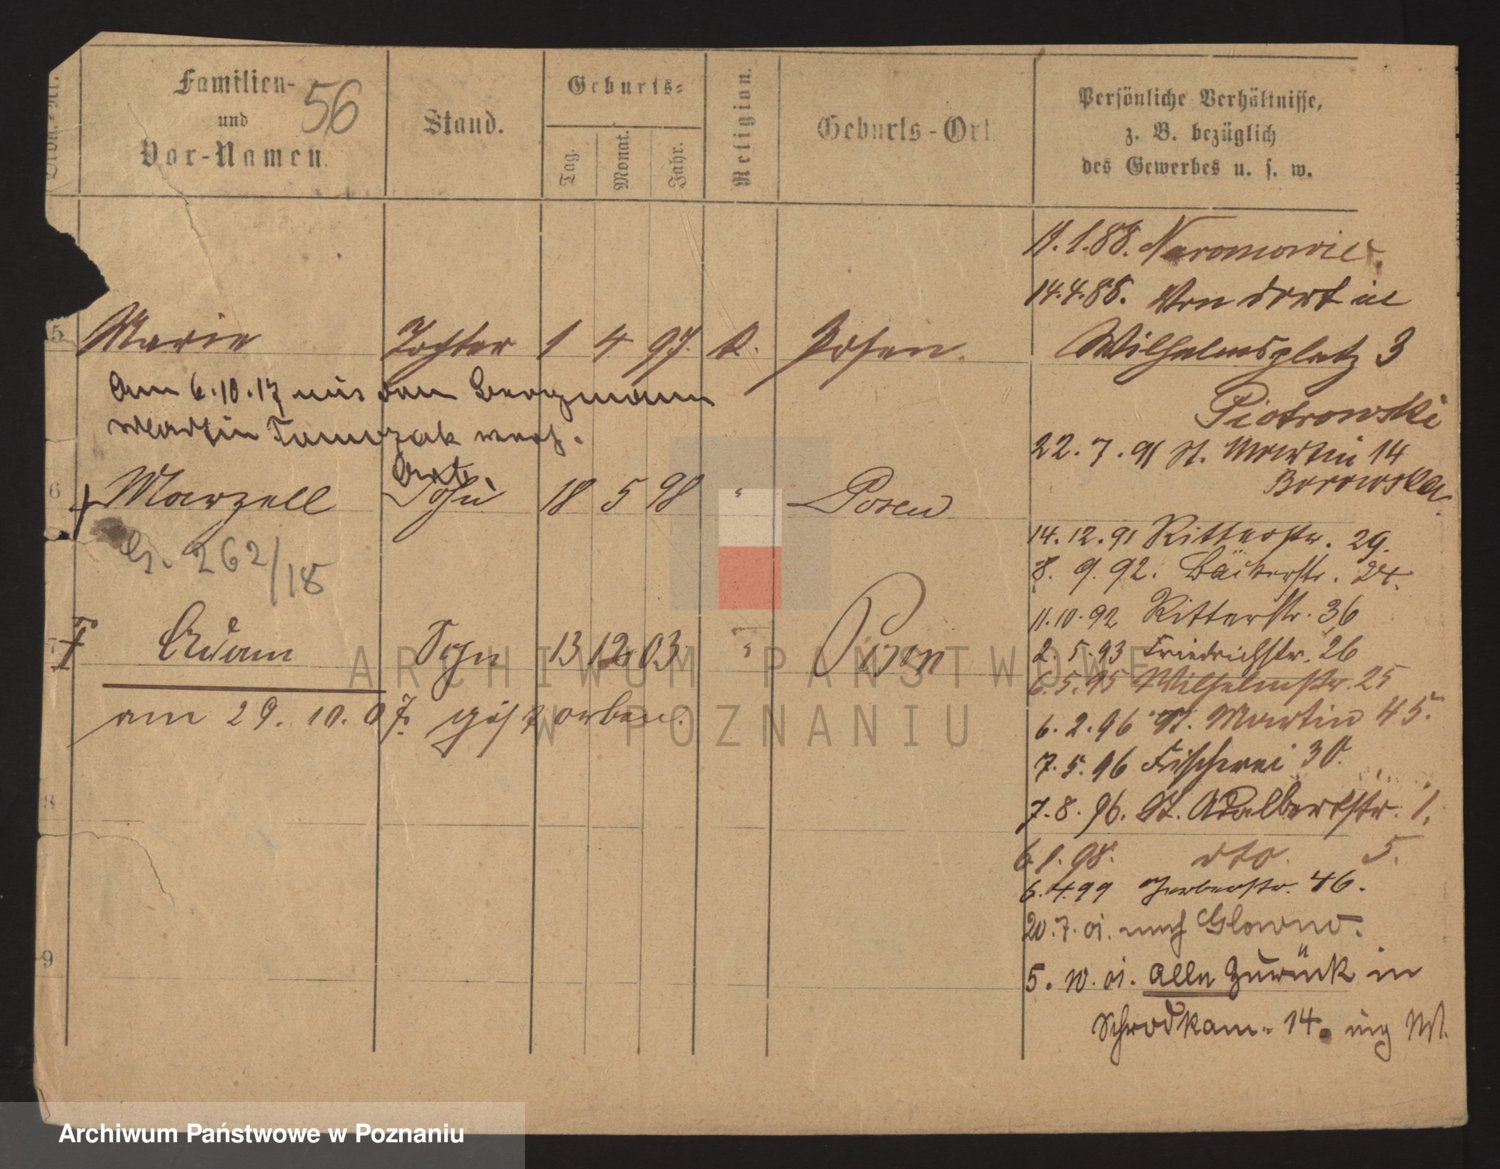 Familien-
und
Vor-Namen.
56
Stand.
Geburts-
Tag.
Monat.
Jahr.
Religion.
Geburts-Ort
Persönliche Verhältnisse,
z. B. bezüglich
des Gewerbes u. s. w.
11.1.88. Naramowice.
14.4.88. Von dort in
5 Marie Tochter 1 4 97. k. Posen.
Wilhelmsplatz 3
Am 6.10.17 mit dem Bergmann
Piotrowski
Martin verh.
22.7.91 St. Martin 14
Borowska.
6 Marzell Sohn 18 5 98 " Posen
14.12.91 Ritterstr. 29.
262/18
8. 9. 92. Bäckerstr. 24.
11.10.92 Ritterstr. 36
Adam Sohn 13 12 03 " Posen
2.5.93 Friedrichstr. 26
6.5.95 Wilhelmstr. 25
am 29.10.07. gestorben.
6.2.96 St. Martin 45.
7.5.96 Fischerei 30.
7.8.96. St. Adalbertstr. 1.
8
6.1.98. dto. 5.
6.4.99 Gerberstr. 46.
20.7.01. nach Glowno.
9
5.10.01. Alle zurück in
14.
ARCHIWUM PAŃSTWOWE
W POZNANIU
Archiwum Państwowe w Poznaniu